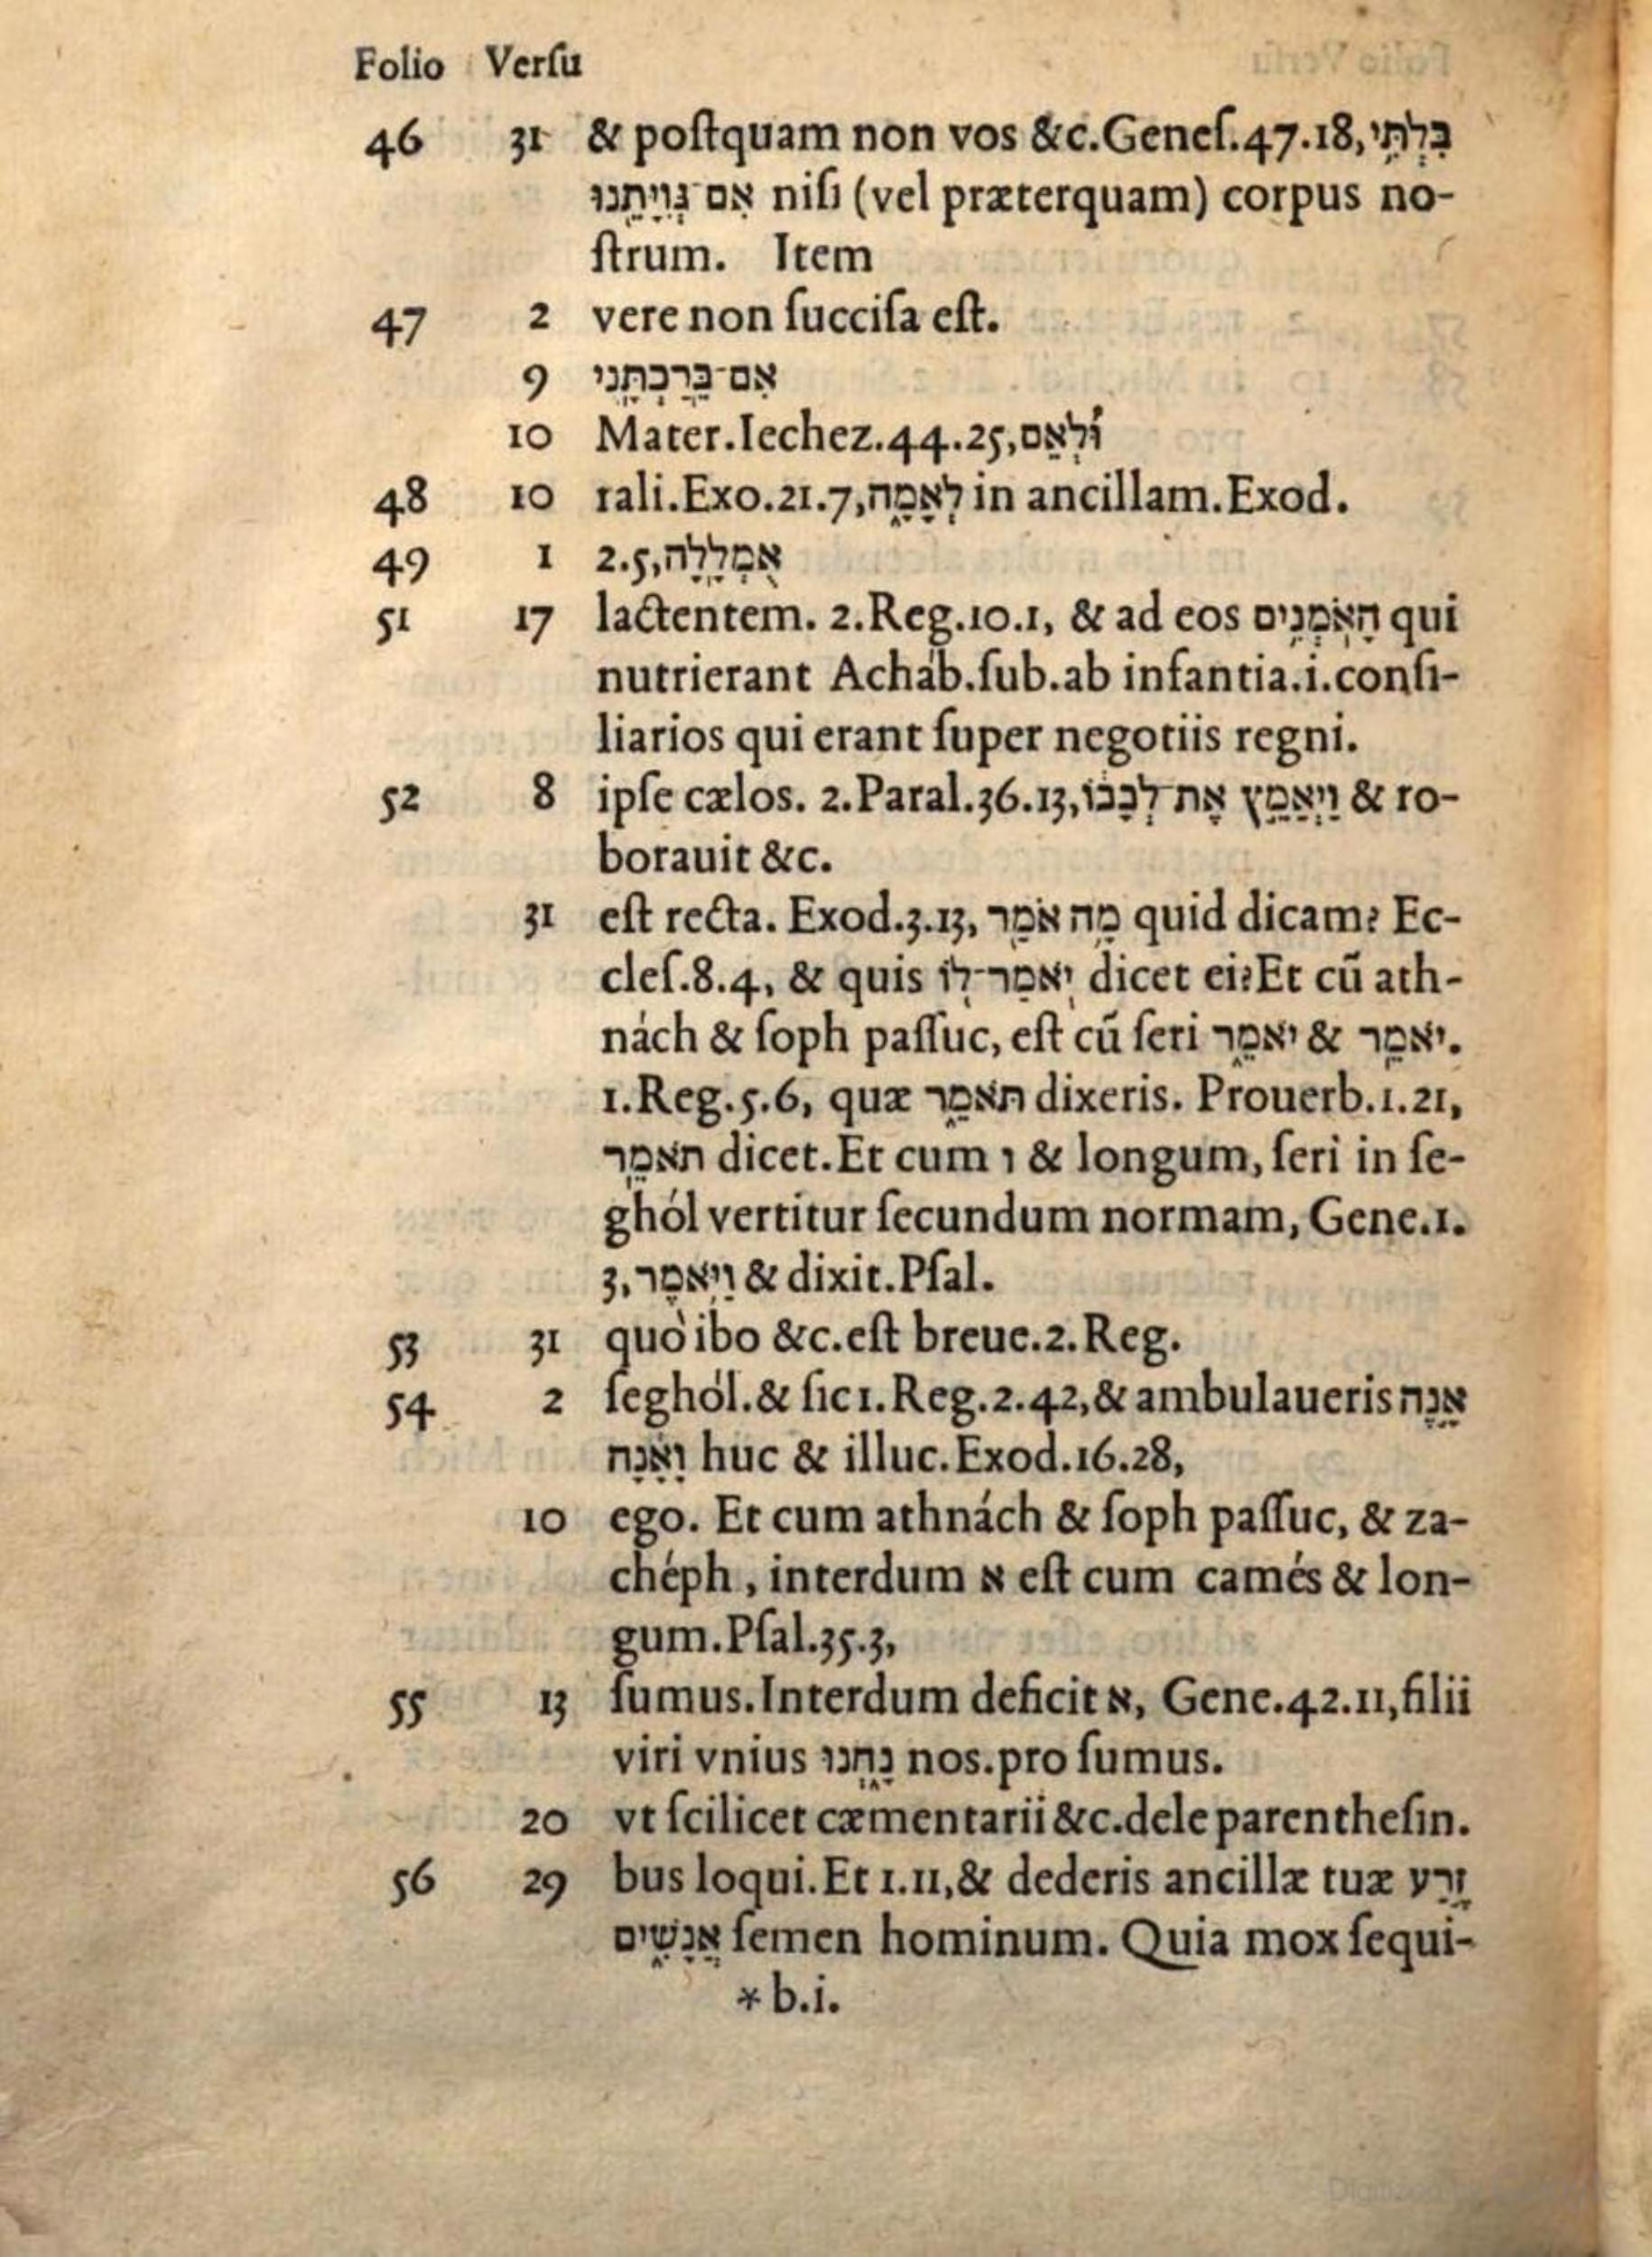 Folio Verſu
46 31 & poſtquam non vos &c.Geneſ.47.18,בִּלְתִּי
אִם־גְּוִיָּתֵנוּ niſi (vel præterquam) corpus no-
ſtrum. Item
47 2 vere non ſucciſa eſt.
9 אִם־בֵּרַכְתָּנִי
10 Mater.Iechez.44.25,וּלְאֵם
48 10 rali.Exo.21.7,לְאָמָה in ancillam.Exod.
49 1 2.5,אֻמְלָלָה
51 17 lactentem. 2.Reg.10.1, & ad eos הָאֹמְנִים qui
nutrierant Acháb.ſub.ab infantia.i.conſi-
liarios qui erant ſuper negotiis regni.
52 8 ipſe cælos. 2.Paral.36.13,וַיְאַמֵּץ אֶת־לְבָבוֹ & ro-
borauit &c.
31 eſt recta. Exod.3.13, מָה אֹמַר quid dicam? Ec-
cleſ.8.4, & quis יֹאמַר־לוֹ dicet ei?Et cū ath-
nách & ſoph paſſuc, eſt cū ſeri יֹאמֵר & יֹאמֵר.
1.Reg.5.6, quæ תֹּאמֵר dixeris. Prouerb.1.21,
תֹאמֵר dicet.Et cum ו & longum, ſeri in ſe-
ghól vertitur ſecundum normam, Gene.1.
3,וַיֹּאמֶר & dixit.Pſal.
53 31 quò ibo &c.eſt breue.2.Reg.
54 2 ſeghól.& ſic 1.Reg.2.42,& ambulaueris אָנֶה
וָאָנָה huc & illuc.Exod.16.28,
10 ego. Et cum athnách & ſoph paſſuc, & za-
chéph, interdum א eſt cum camés & lon-
gum.Pſal.35.3,
55 13 ſumus.Interdum deficit א, Gene.42.11,filii
viri vnius נָחְנוּ nos.pro ſumus.
20 vt ſcilicet cæmentarii &c.dele parentheſin.
56 29 bus loqui.Et 1.11,& dederis ancillæ tuæ זֶרַע
אֲנָשִׁים ſemen hominum. Quia mox ſequi-
* b.i.